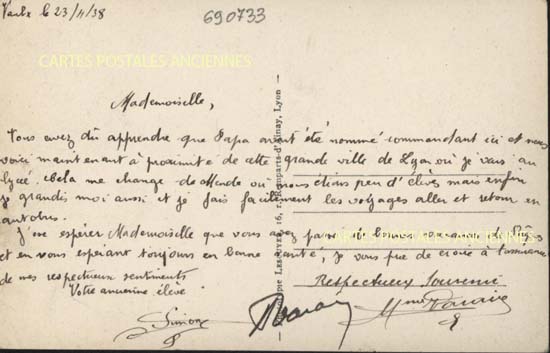 Vaulx le 23/11/38
690733
CARTES POSTALES ANCIENNES
Mademoiselle,
Vous avez dû apprendre que Papa avait été nommé commandant ici et nous
voici maintenant à proximité de cette grande ville de Lyon où je vais au
lycée. Cela me change de Mende où nous étions peu d'élèves mais enfin
je grandis moi aussi et je fais facilement les voyages aller et retour en
autobus.
J'ose espérer Mademoiselle que vous avez passé de bonnes vacances de
et en vous espérant toujours en bonne santé, je vous prie de croire à l'assurance
de mes respectueux sentiments
Votre ancienne élève
Simone
Respectueux Souvenir
Mme
16, r. Remparts-d'Ainay, Lyon
CARTES POSTALES ANCIENNES